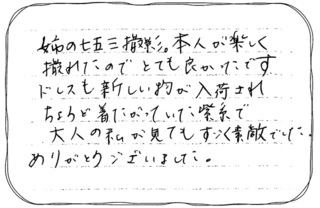 姉の七五三撮影。本人が楽しく
撮れたのでとても良かったです
ドレスも新しい物が入荷され
ちょうど着たがっていた紫系で
大人の私が見てもすごく素敵でした。
ありがとうございました。